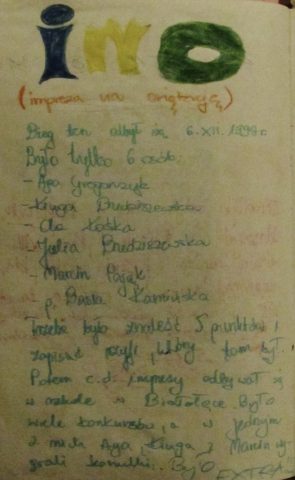 ino
(impreza na orientację)
Bieg ten odbył się 6.XII.1998r
Było tylko 6 osób:
- Aga
- Kinga Brudziszewska
- Ola Łaska
- Julia Brudziszewska
- Marcin Pająk
p. Basia Kamińska
Trzeba było znaleść 5 punktów i
zapisać szyfr, który tam był.
Potem c.d. imprezy odbywał się
w szkole w Białołęce. Było
wiele konkursów, a w jednym
z nich Aga, Kinga i Marcin wy-
grali koszulki. Było EXTRA